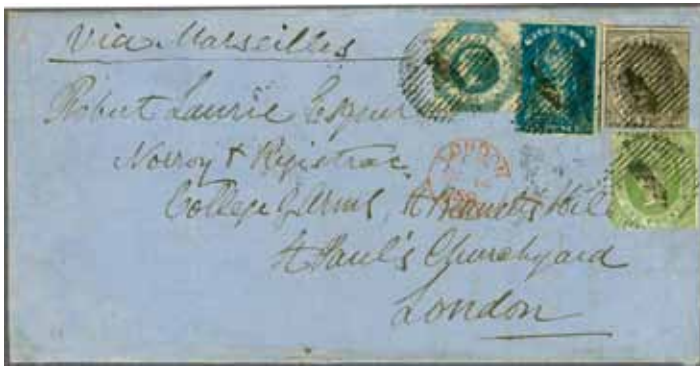 Via Marseilles
Robert Laurie Esquire
Norroy & Registrar
College of Arms, St Bennetts Hill
St Paul's Churchyard
London
LONDON